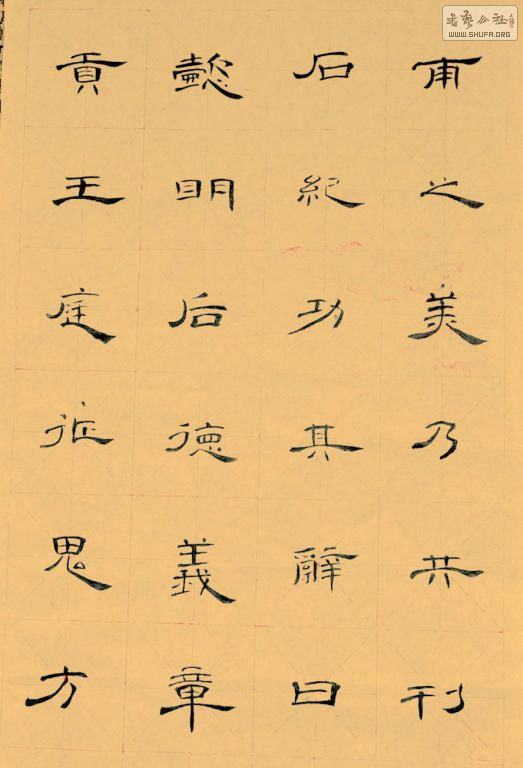 甫之美乃共刊
石紀功其辭曰
懿明后德義章
貢王庭征鬼方
書藝公社
WWW.SHUFA.ORG